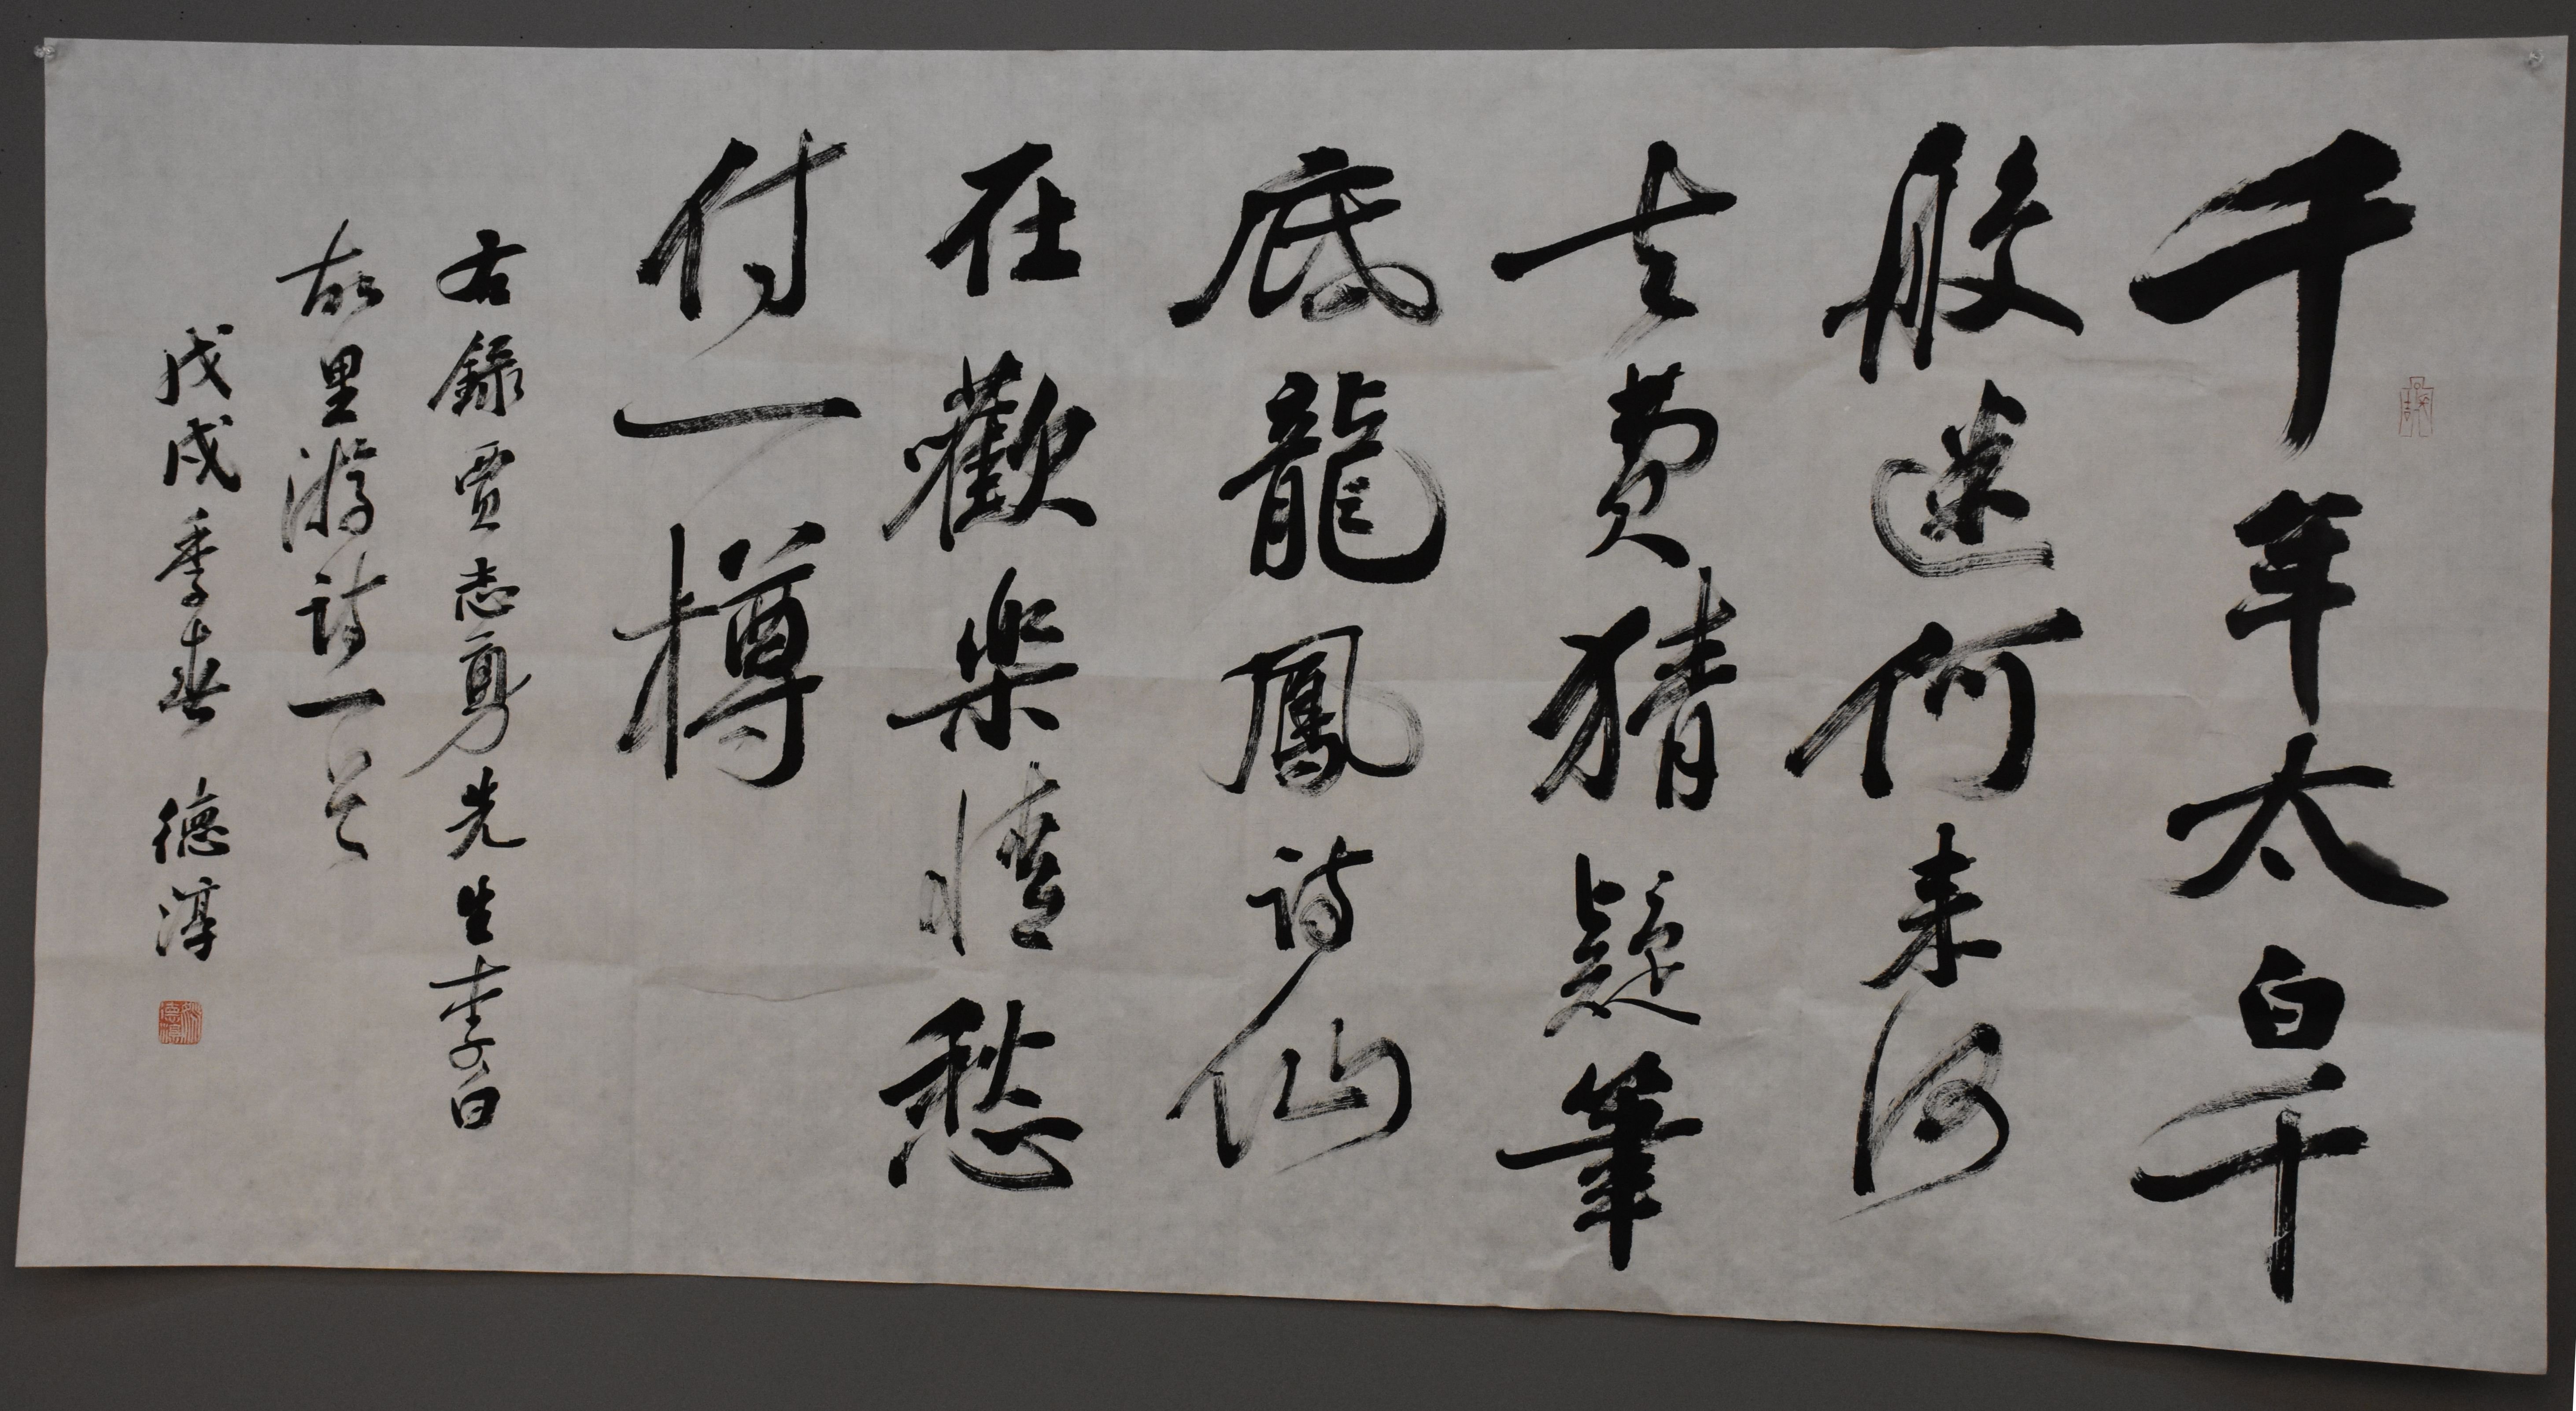 千年太白千
般迷何来何
去費猜疑筆
底龍鳳詩仙
在歡樂情愁
付一樽
右録賈志勇先生李白
故里游詩一首
戊戌季春 德淳